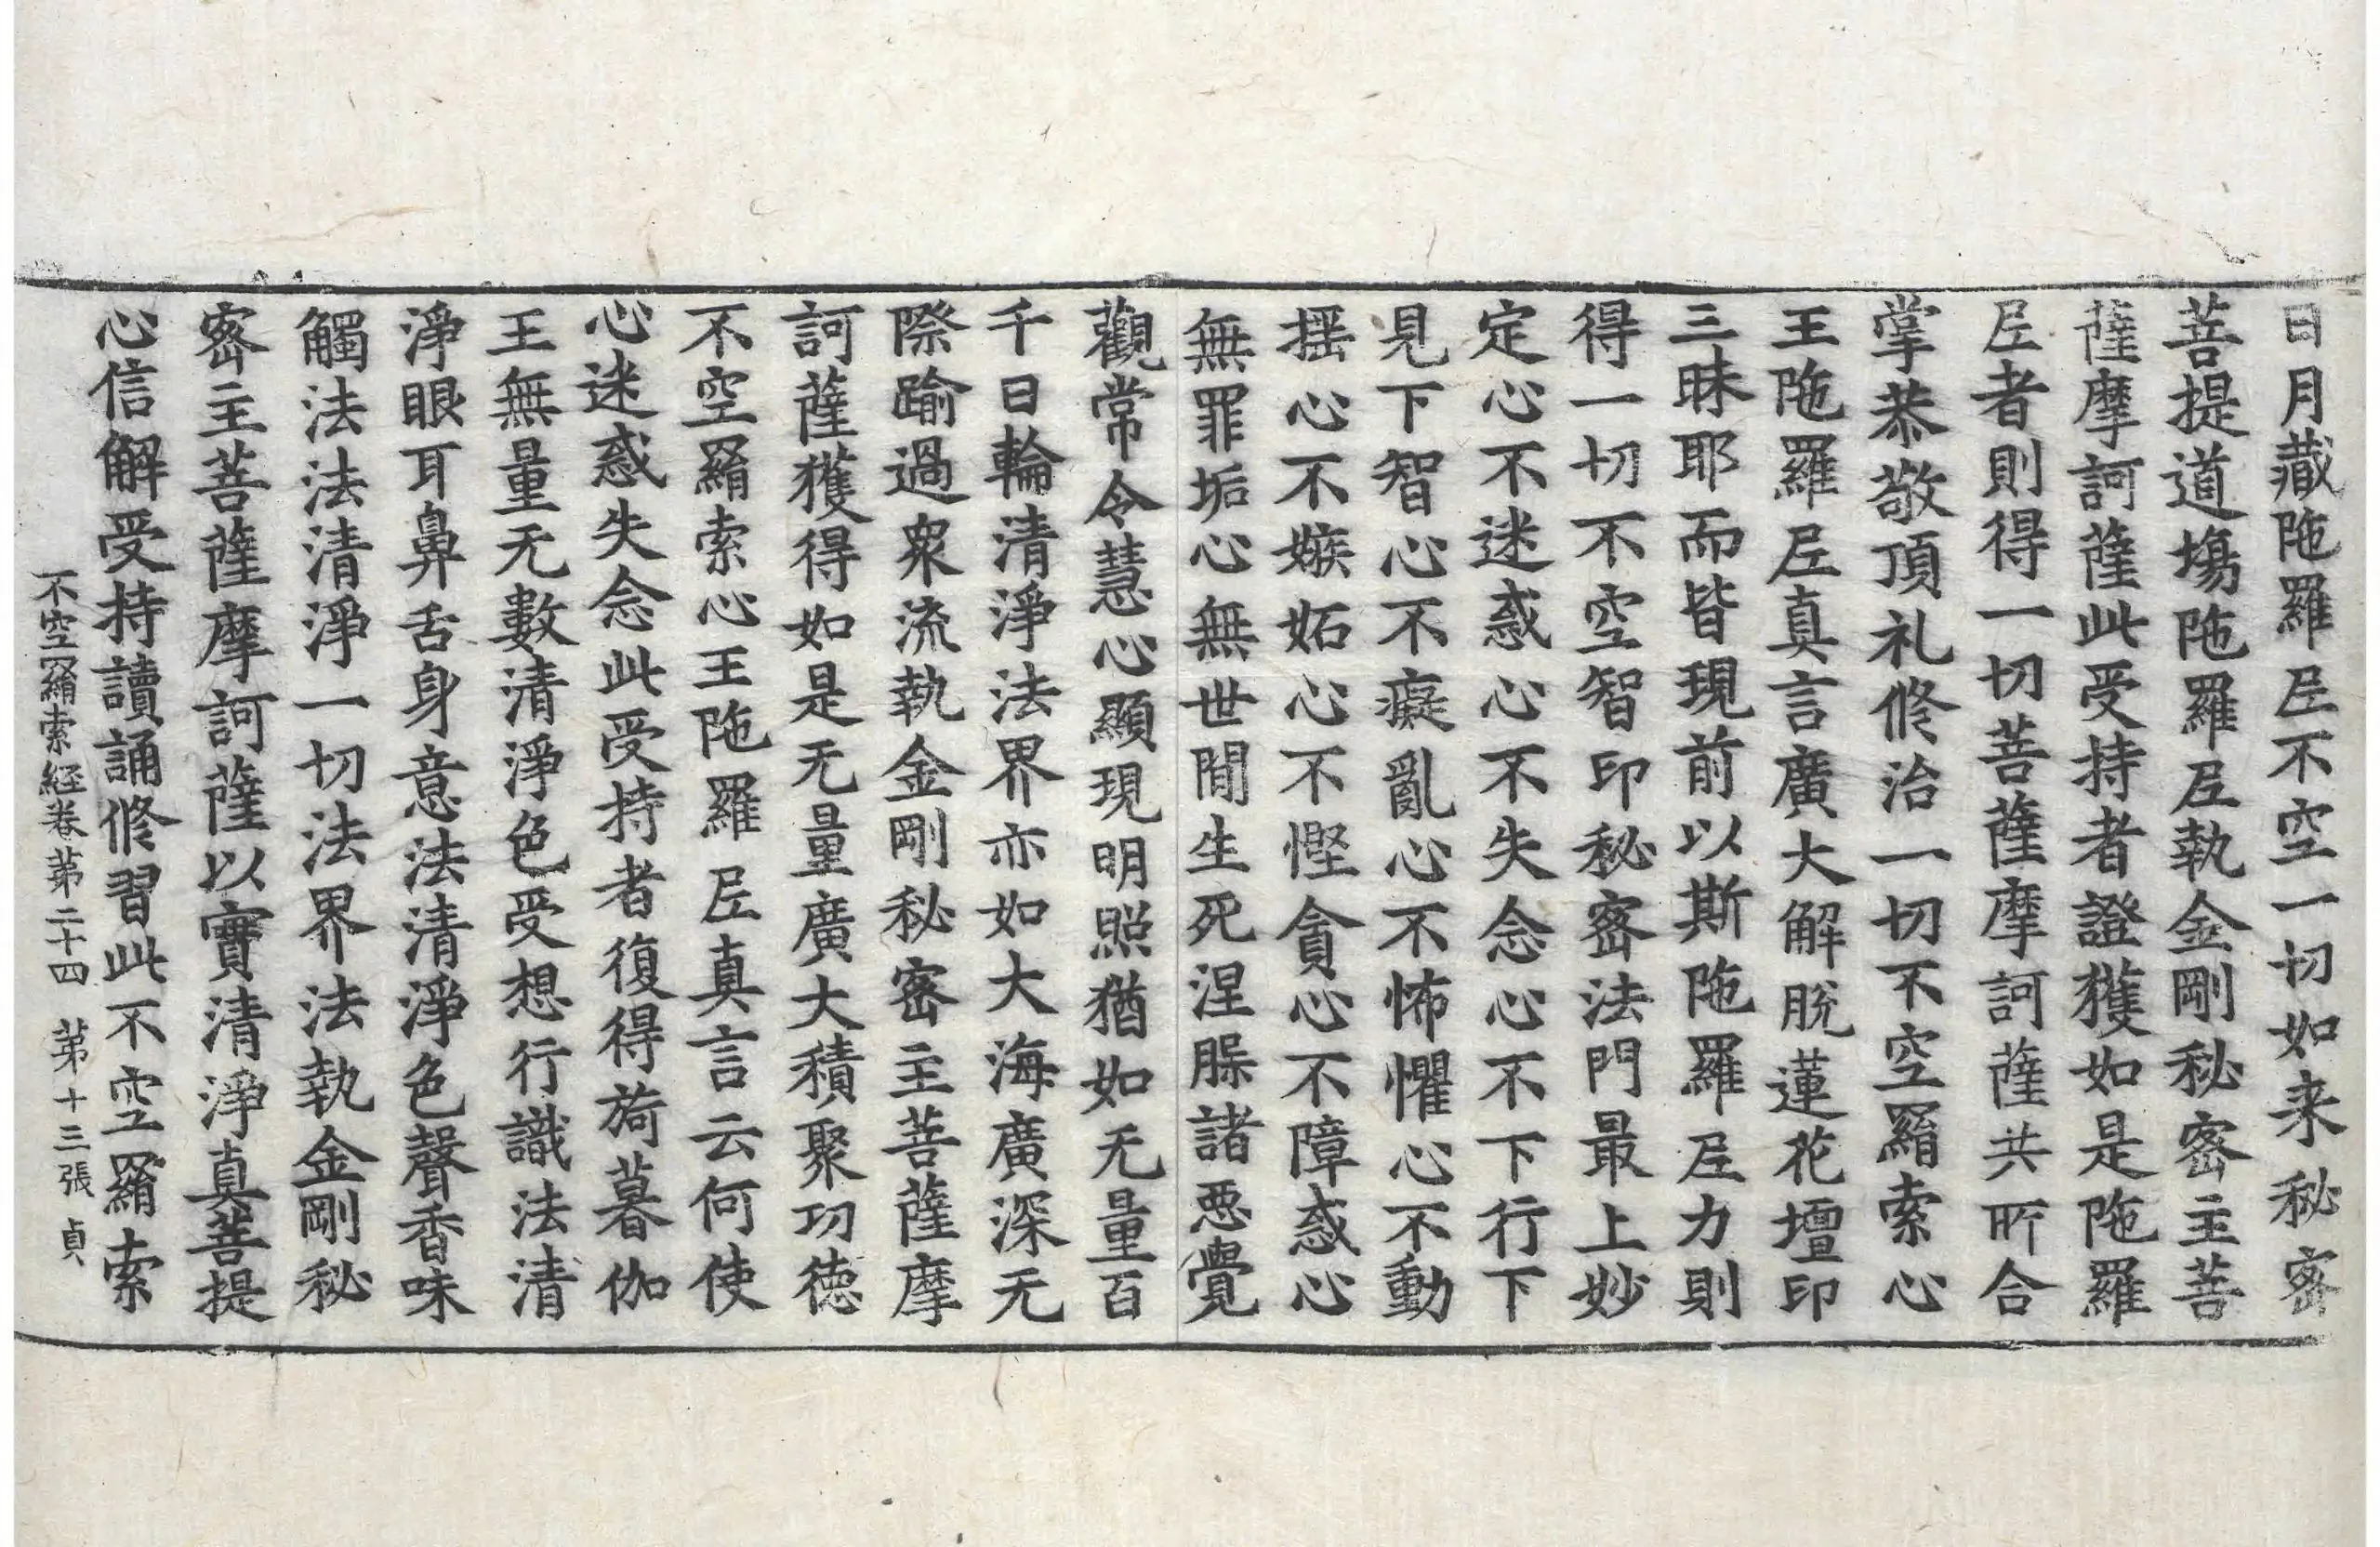 日月藏陁羅𡰱不空一切如来秘密
菩提道場陁羅𡰱執金剛秘密主菩
薩摩訶薩此受持者證獲如是陁羅
𡰱者則得一切菩薩摩訶薩共所合
掌恭敬頂礼修治一切不空羂索心
王陁羅𡰱真言廣大解脫蓮花壇印
三昧耶而皆現前以斯陁羅𡰱力則
得一切不空智印秘密法門最上妙
定心不迷惑心不失念心不下行下
見下智心不癡亂心不怖懼心不動
揺心不嫉妬心不慳貪心不障惑心
無罪垢心無世間生死涅槃諸惡覺
觀常令慧心顯現明照猶如无量百
千日輪清淨法界亦如大海廣深无
際踰過衆流執金剛秘密主菩薩摩
訶薩獲得如是无量廣大積聚功徳
不空羂索心王陁羅𡰱真言云何使
心迷惑失念此受持者復得旖暮伽
王無量无數清淨色受想行識法清
淨眼耳鼻舌身意法清淨色聲香味
觸法法清淨一切法界法執金剛秘
密主菩薩摩訶薩以實清淨真菩提
心信解受持讀誦修習此不空羂索
不空羂索経卷苐二十四 苐十三張 貞